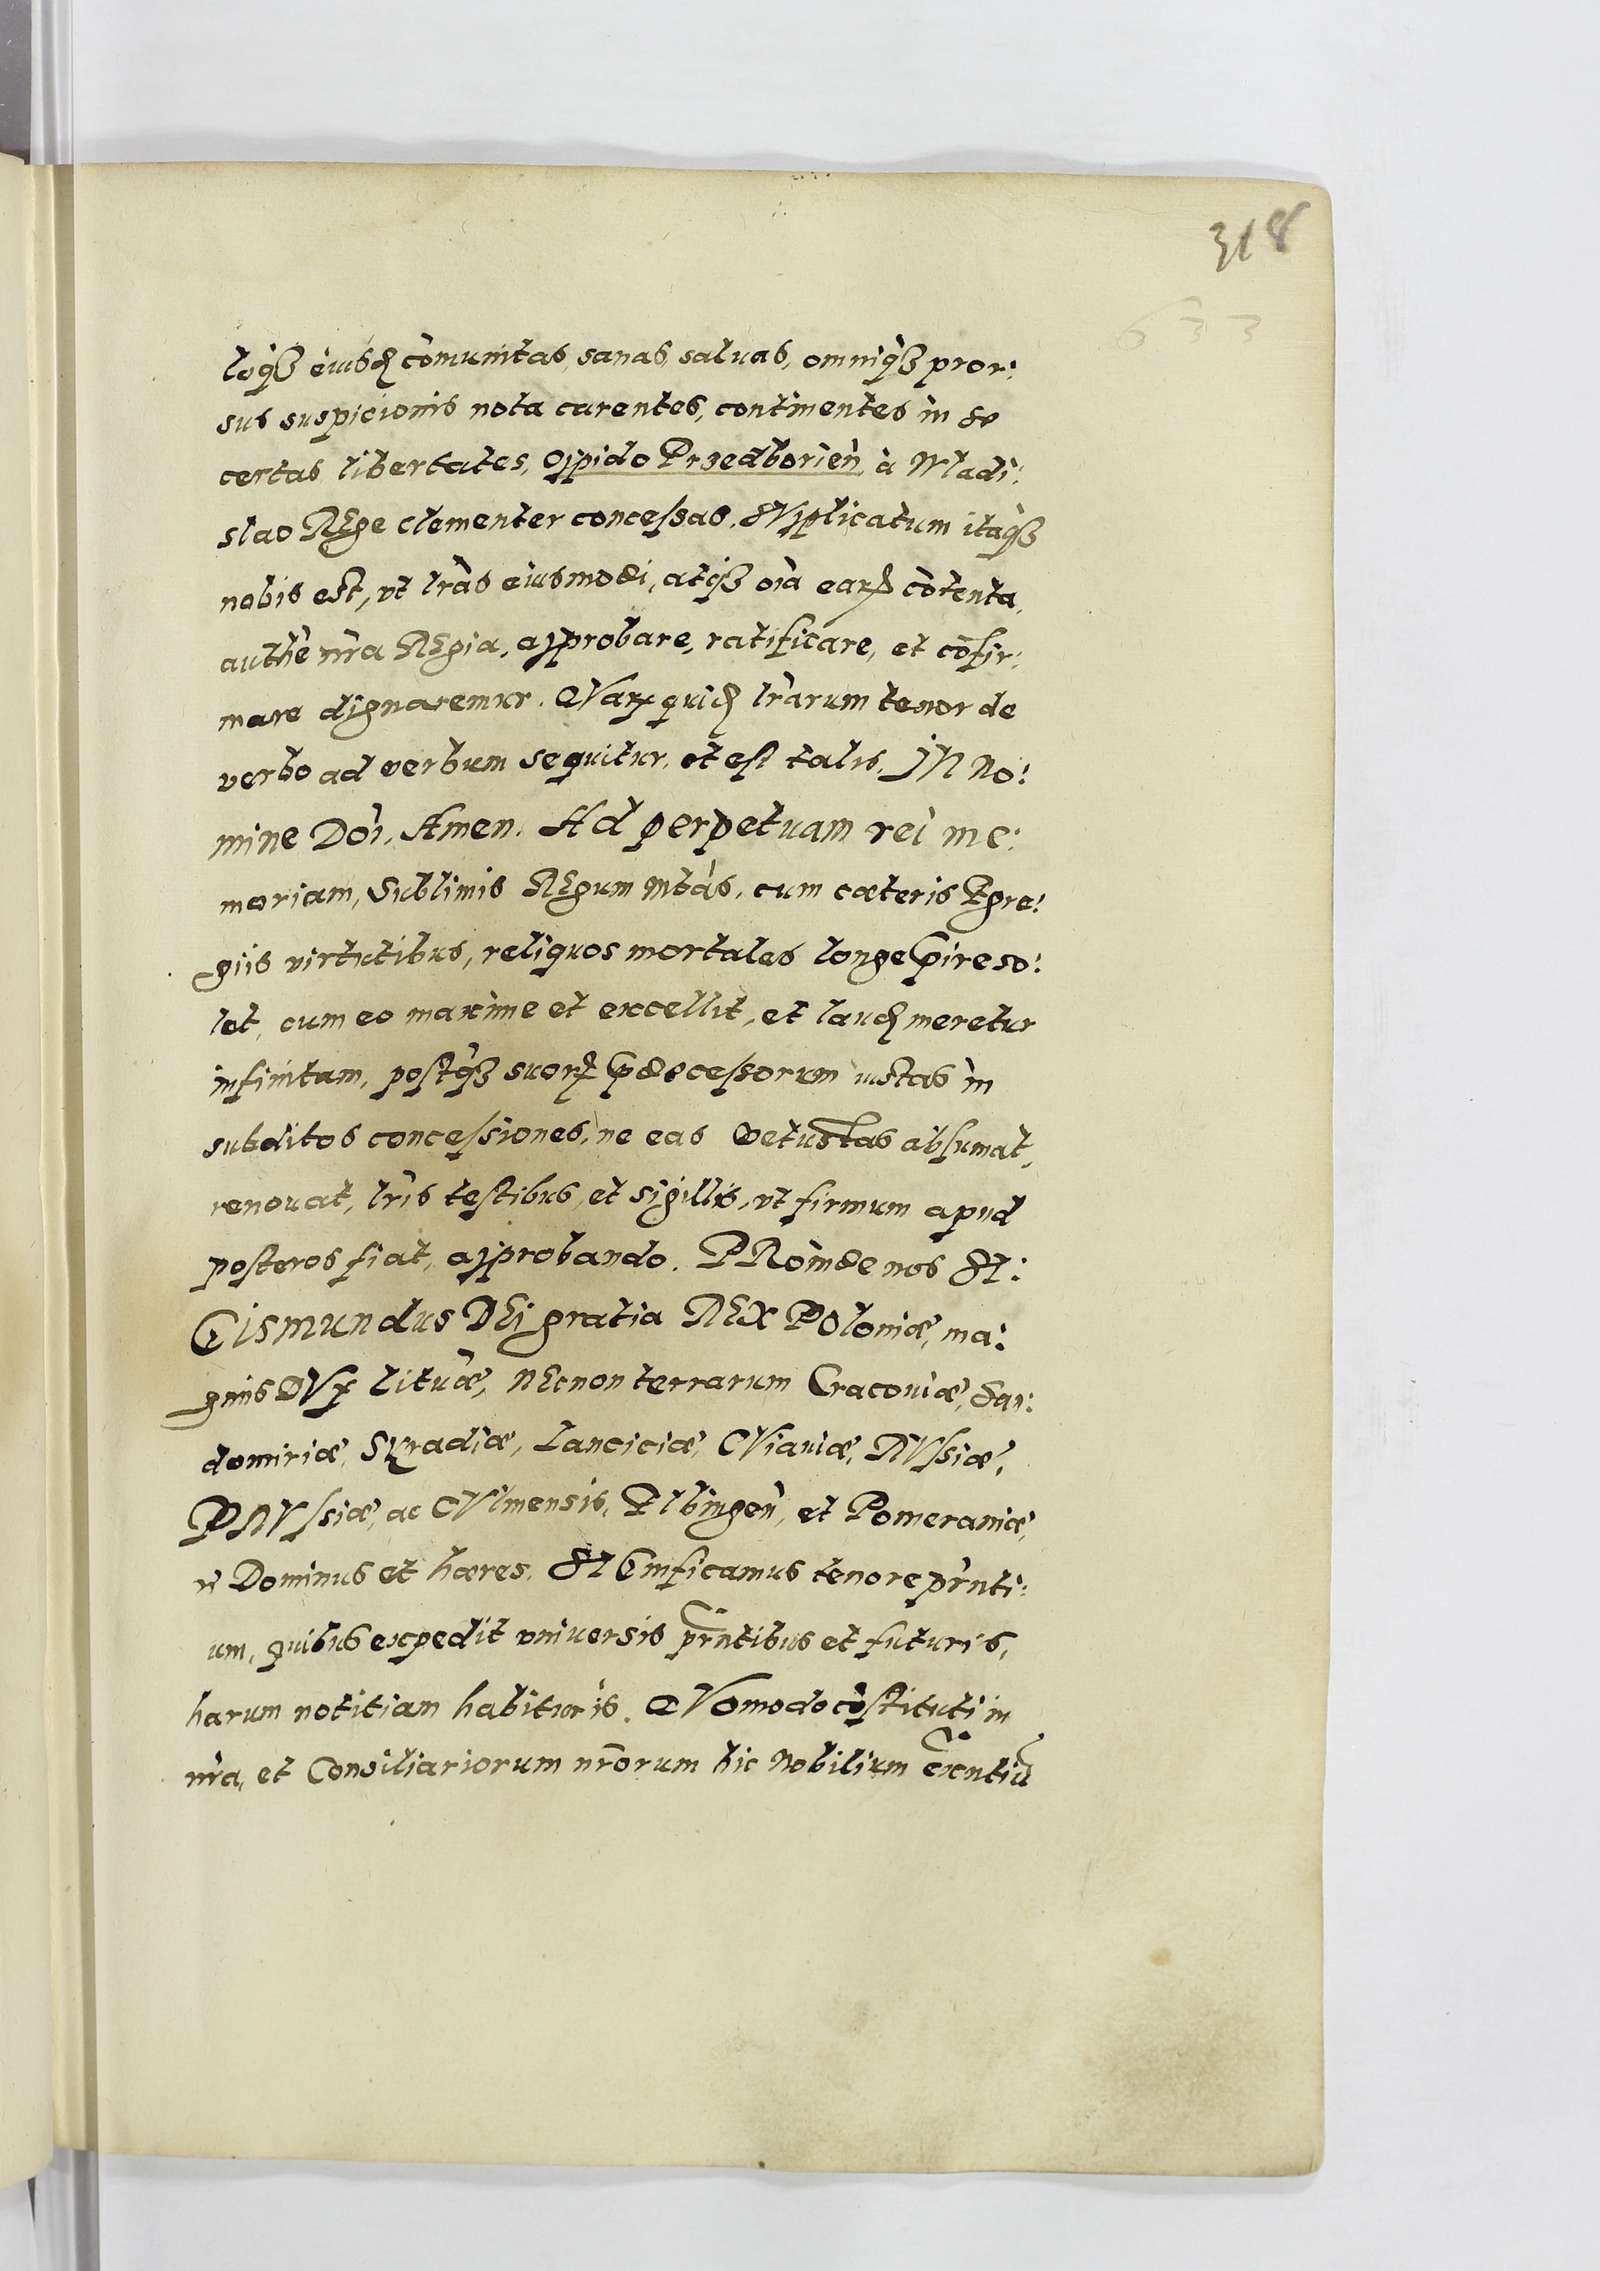 318
633
loq̃ꝫ eiusdꝫ com̃unitas, sanas, saluas, omniq̃ꝫ pror:
sus suspicionis nota carentes, continentes in se
certas libertates, Oppido Przedborien̄ à Wladi:
slao REge clementer concessas. SVpplicatum itaq̃ꝫ
nobis est, vt lr̃as eiusmodi, atq̃ꝫ oĩa earꝝ cõtenta,
authe nr̃a REgia, approbare, ratificare, et cõfir:
mare dignaremur. QVarꝝ quidꝫ lr̃arum tenor de
verbo ad verbum sequitur, et est talis. IN No:
mine Dõi, Amen. Ad perpetuam rei me:
moriam, Sublimis REgum mtãs, cum cæteris Egre:
giis virtutibus, reliquos mortales longe p̃ire so:
let, cum eo maxime et excellit, et laudꝫ meretur
infinitam, postq̃ꝫ suorꝝ p̃decessorum iustas in
subditos concessiones, ne eas vetustas absumat,
renouat, lr̃is testibus, et sigillis, vt firmum apud
posteros fiat, approbando. PRoinde nos SI:
GISMUNdus DEI gratia REX POloniæ, ma:
gnus DVx lituæ, NEcnon terrarum Cracouiæ, San:
domiriæ, SYradiæ, Lanciciæ, CViauiæ, RVssiæ,
PRVssiæ, ac CVlmensis, Elbingen̄, et Pomeraniæ,
Dominus et hæres. SIGnificamus tenore pr̃nti:
um, quibus expedit vniuersis pr̃ntibus et futuris,
harum notitiam habituris. QVomodo cõstituti in
nr̃a, et Consiliariorum nr̃orum hic Nobilium exñtiũ